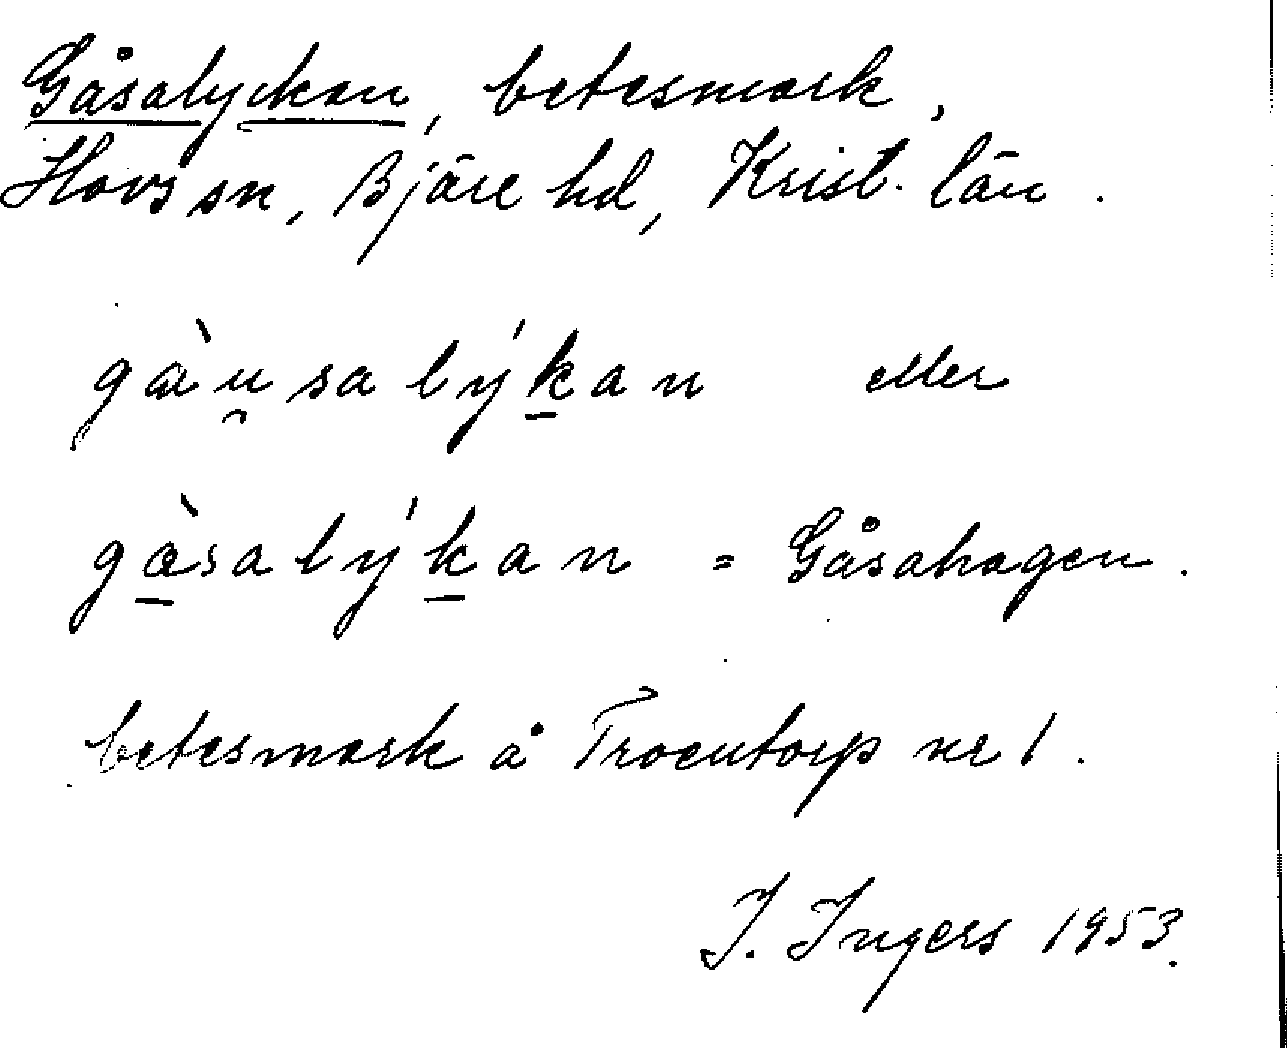 Gåsalyckan, betesmark,
Hovs sn, Bjäre hd, Krist. län.
gàu̯salýk̲an eller
gà̲salýk̲an = Gåsahagen.
betesmark å Troentorp nr 1.
I. Ingers 1953.